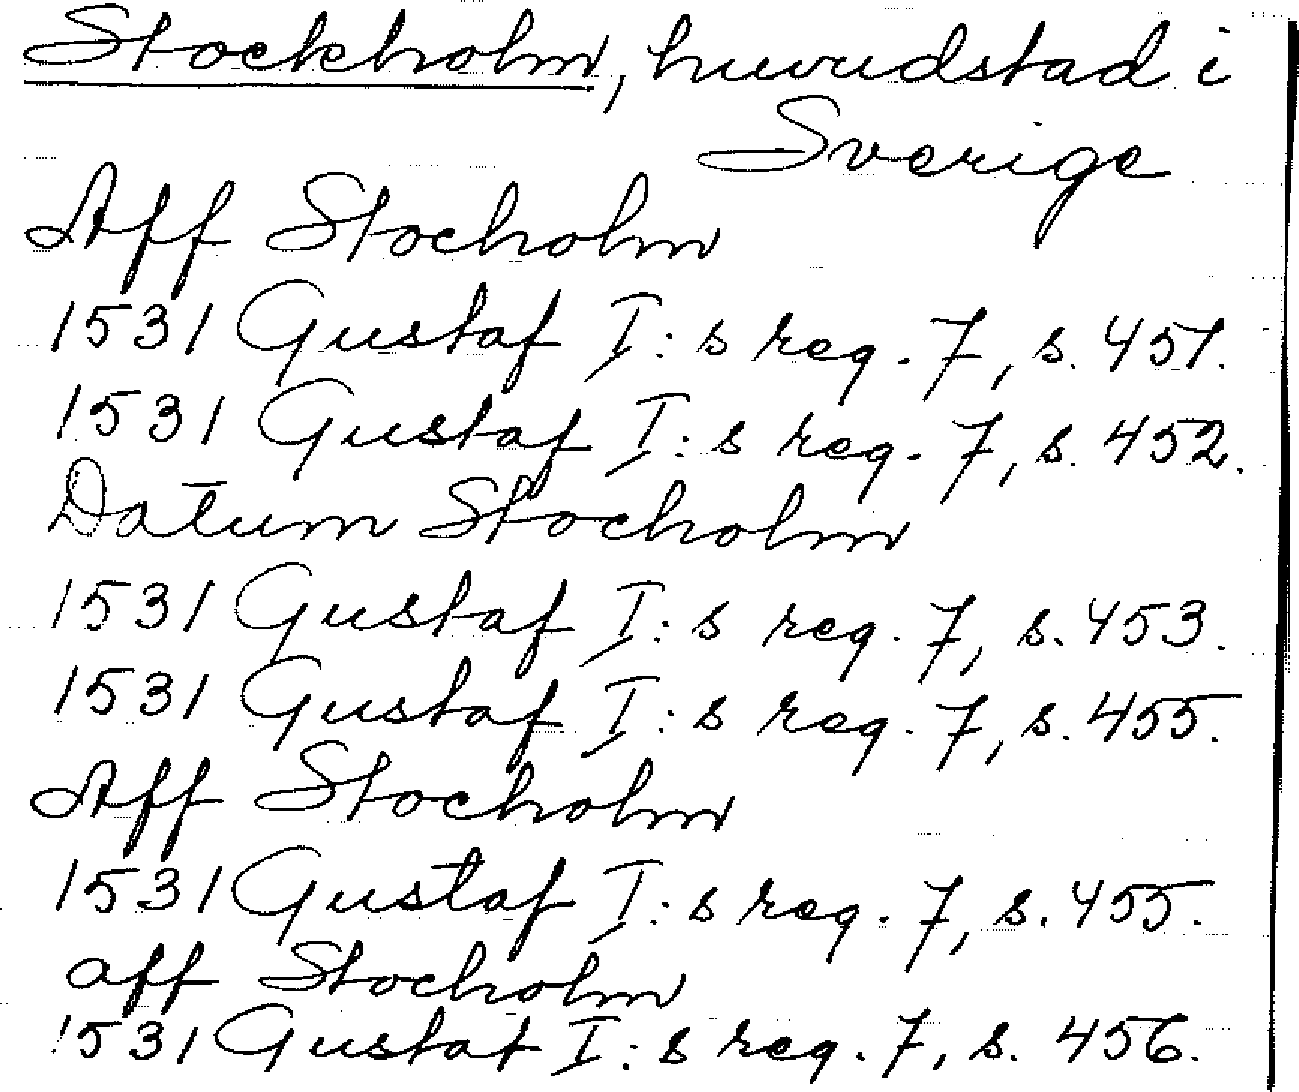 Stockholm, huvudstad i
Sverige
Aff Stocholm
1531 Gustaf I: s reg. 7, s. 451.
1531 Gustaf I: s reg. 7, s. 452.
Datum Stocholm
1531 Gustaf I: s reg. 7, s. 453.
1531 Gustaf I: s reg. 7, s. 455.
Aff Stocholm
1531 Gustaf I: s reg. 7, s. 455.
aff Stocholm
1531 Gustaf I: s reg. 7, s. 456.